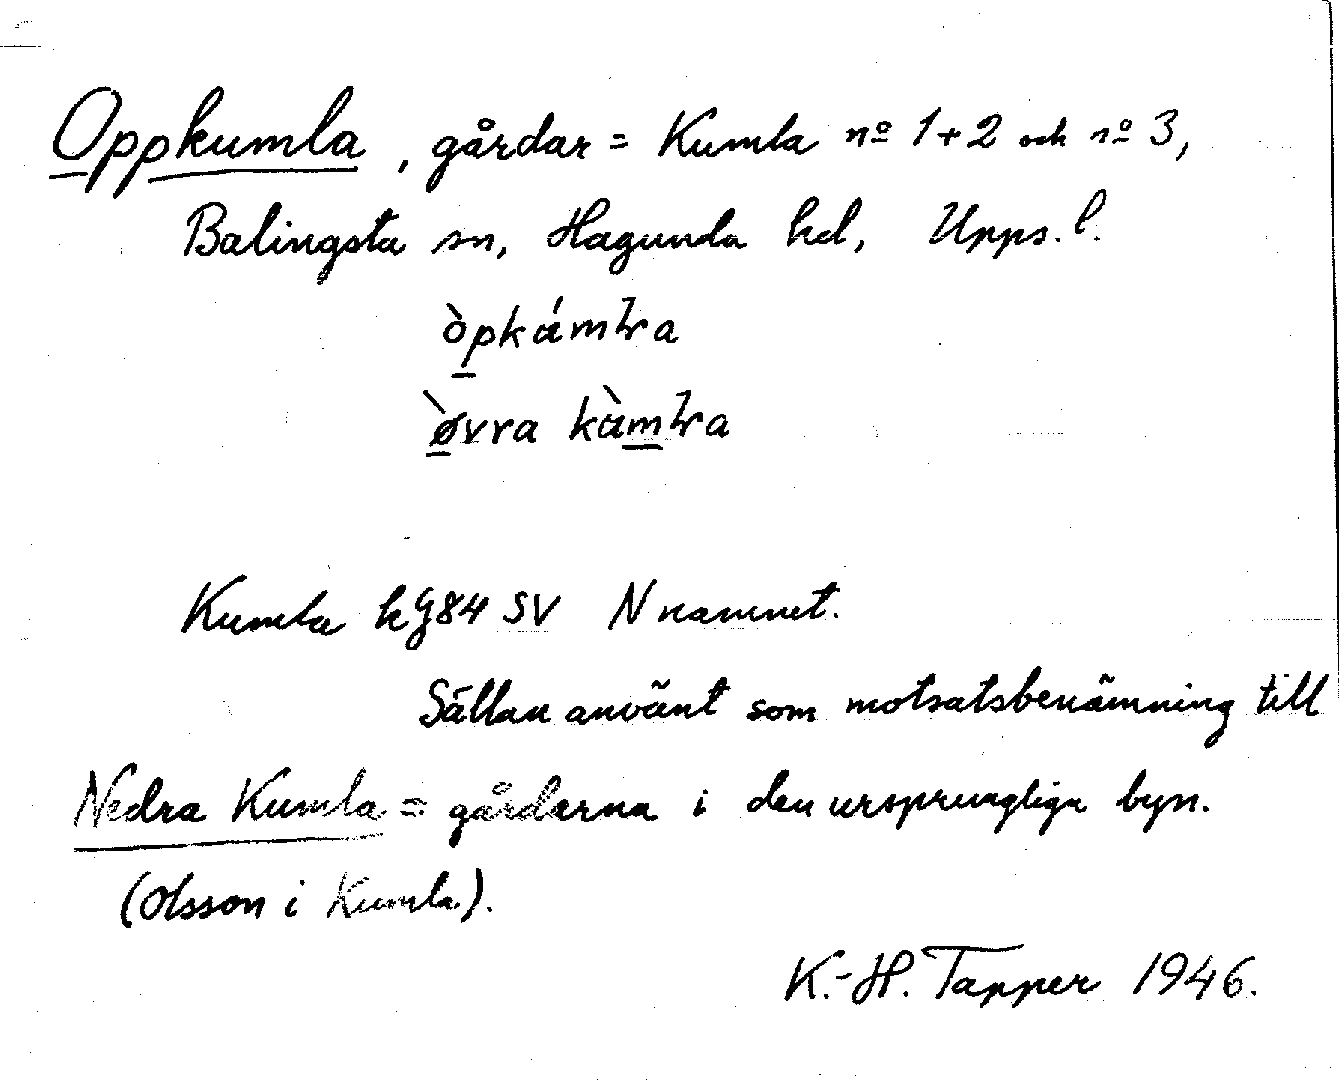 Oppkumla, gårdar = Kumla nº 1+2 och nº 3,
Balingsta sn, Hagunda hd, Upps. l.
òpkámɫra
øvra kàmɫra
Kumla kg84 SV N namnet.
Sällan använt som motsatsbenämning till
Nedra Kumla = gårderna i den ursprungliga byn.
(Olsson i Kumla).
K.-H. Tapper 1946.